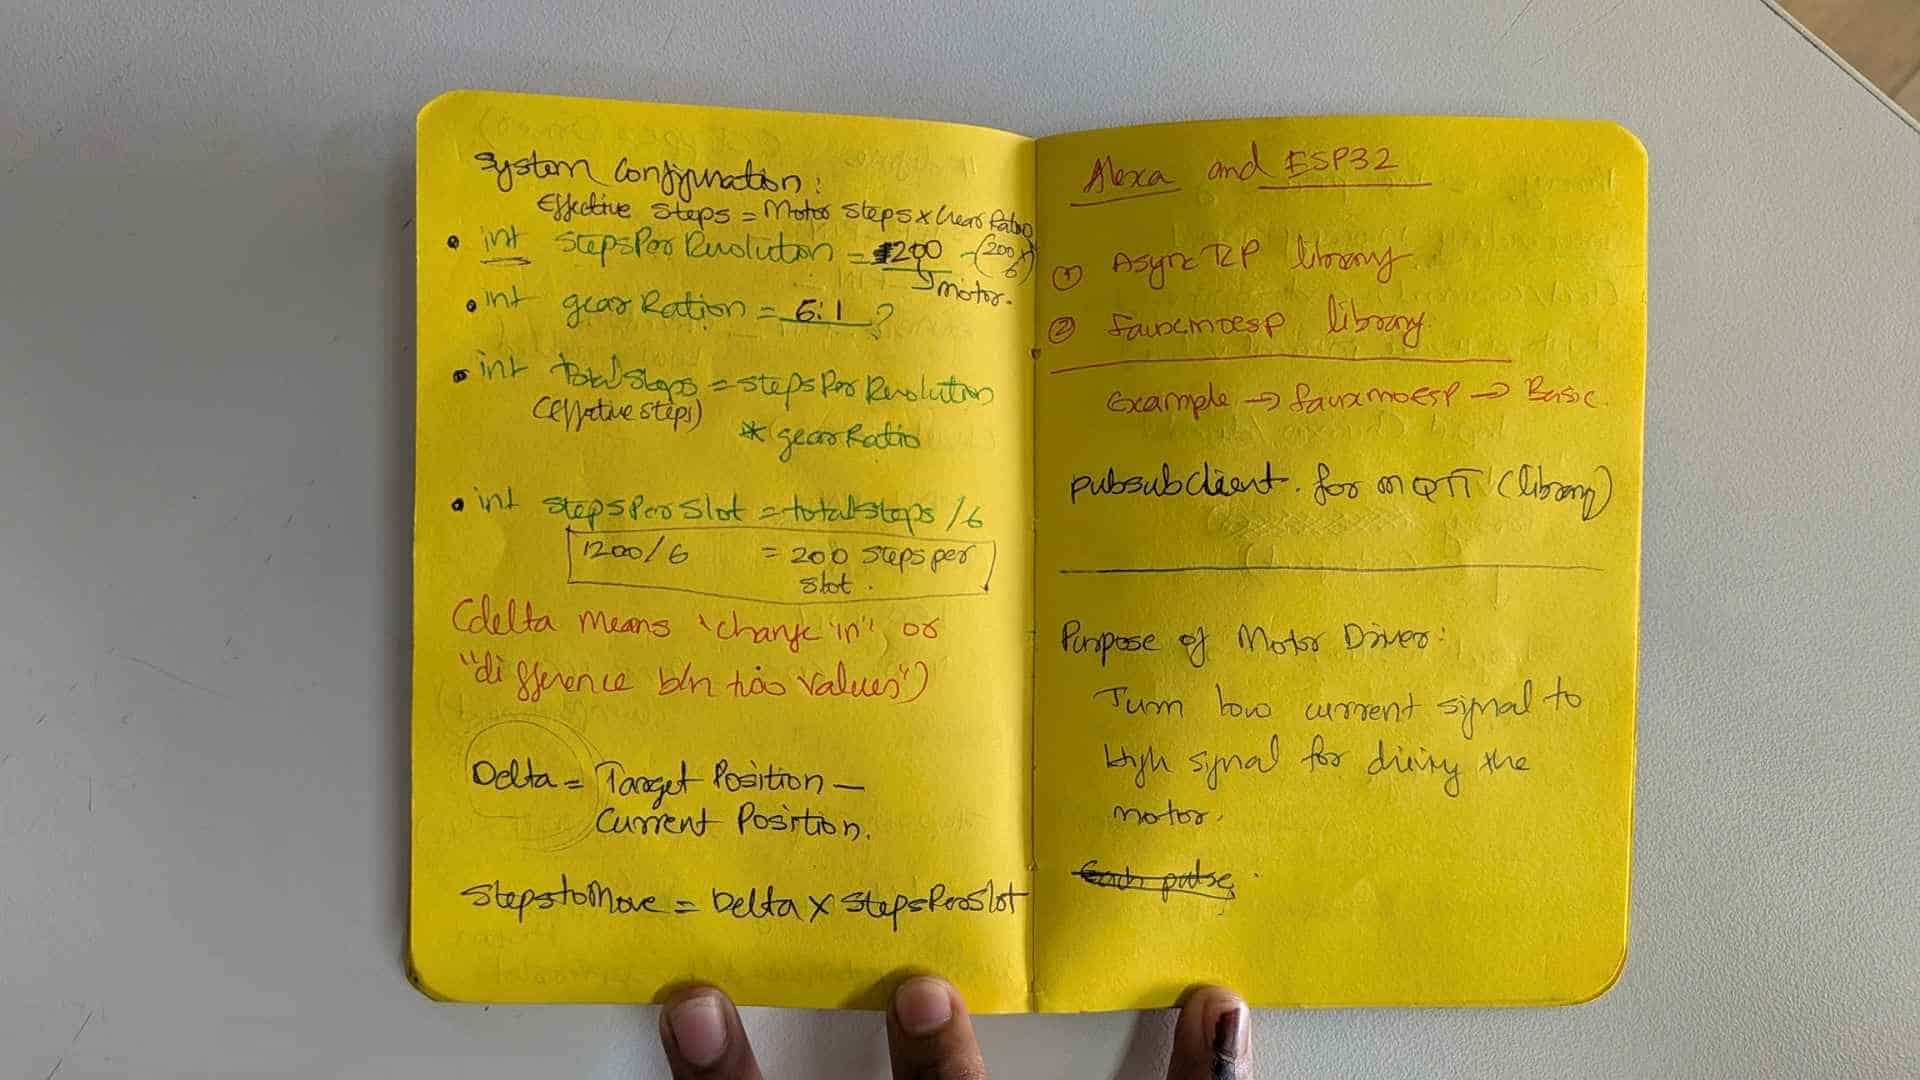 System Configuration:
Effective Steps = Motor Steps x Gear Ratio
int StepsPerRevolution = 1200 - (200 x 6)
Motor.
int gear Ration = 6:1 ?
int TotalSteps = stepsPerRevolution
(effective steps)
* gearRatio
int StepsPerSlot = totalsteps /6
1200/6 = 200 steps per
slot.
(delta means "change in" or
"difference b/n two values")
Delta = Target Position -
Current Position.
StepstoMove = Delta x StepsPerSlot
Alexa and ESP32
① AsyncTCP library
② fauxmoesp library.
Example → fauxmoESP → Basic.
pubsubclient. for MQTT (library)
Purpose of Motor Driver:
Turn low current signal to
High signal for driving the
motor.
Each pulse